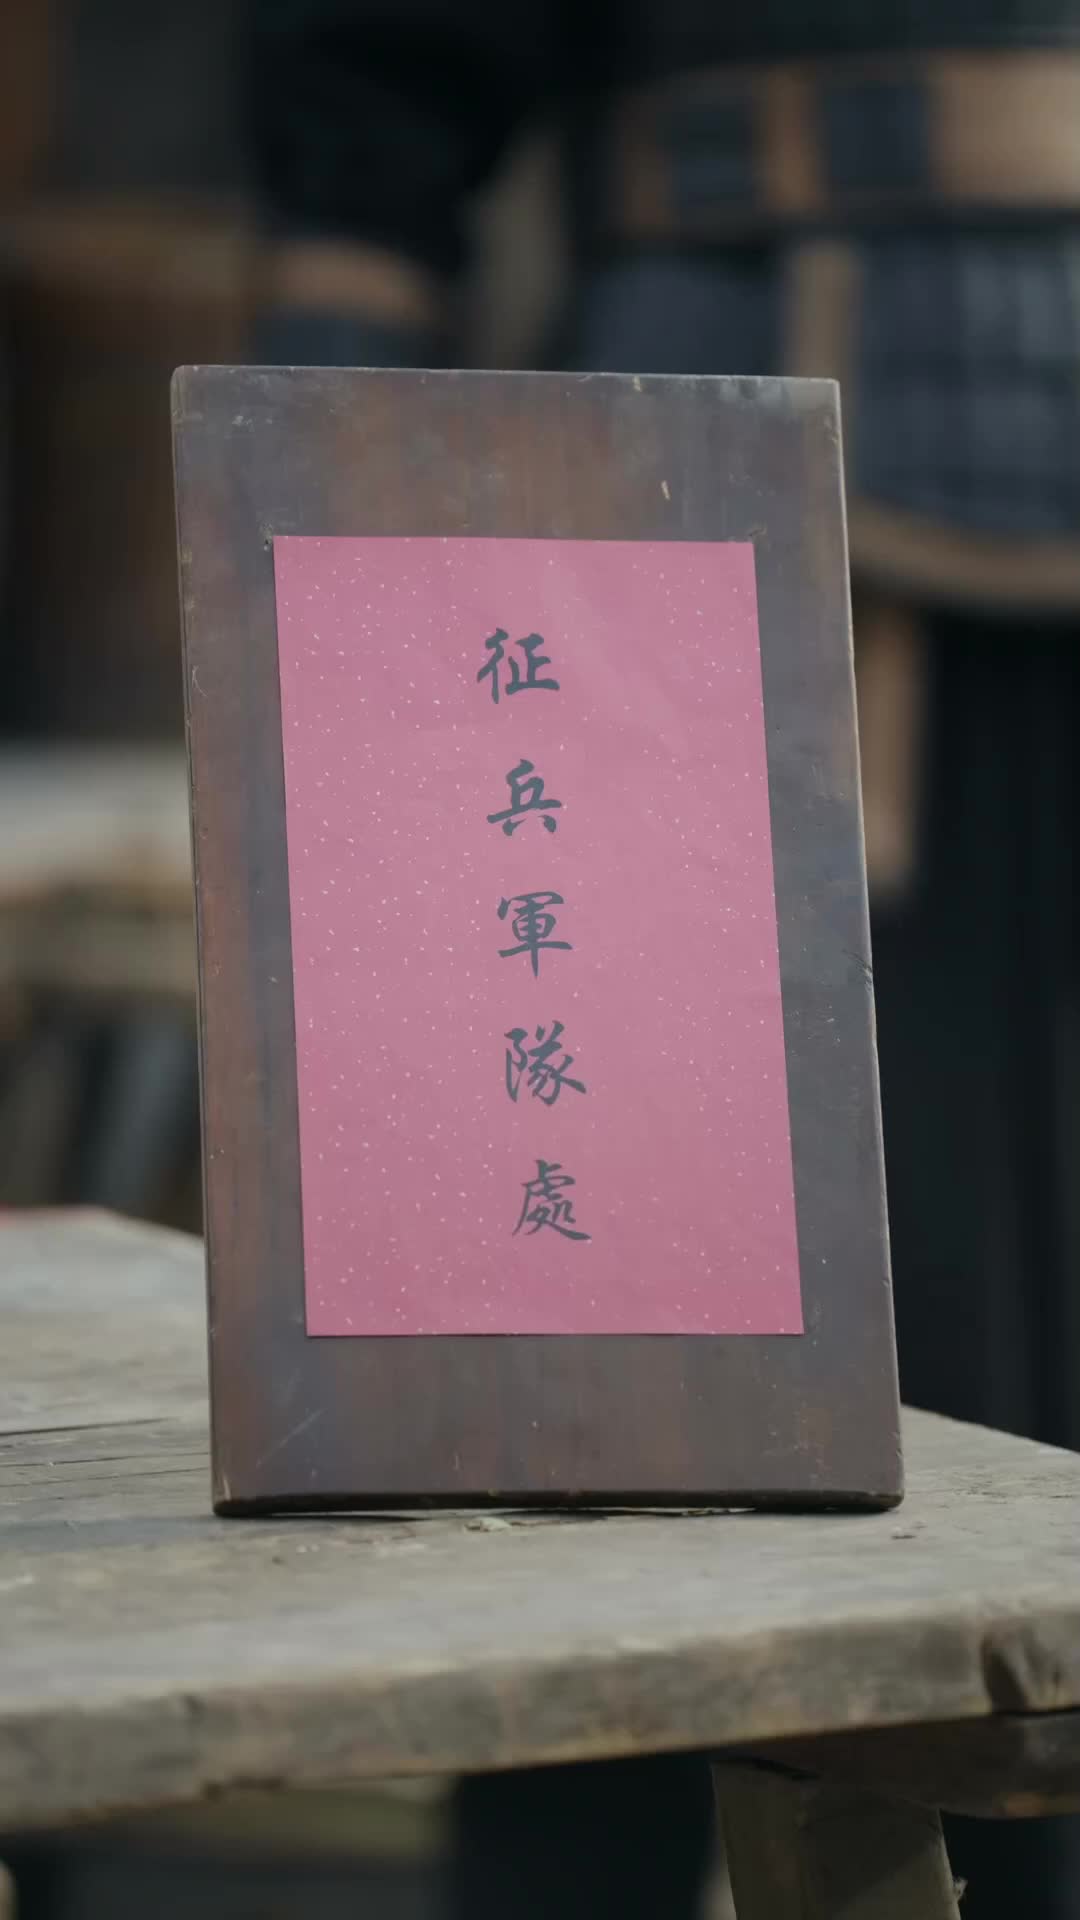 征兵軍隊處